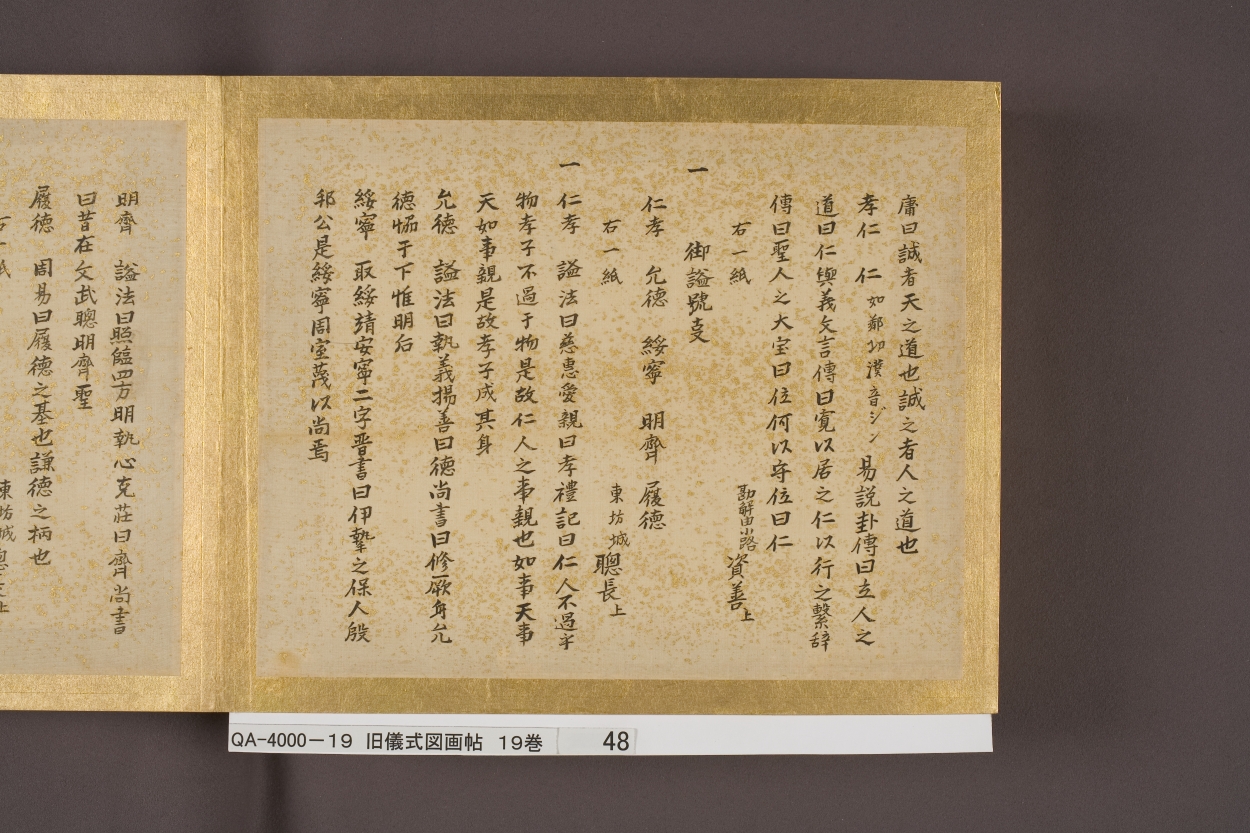 庸曰誠者天之道也誠之者人之道也
孝仁 仁 如鄰切漢音ジン 易説卦傳曰立人之
道曰仁與義文言傳曰寛以居之仁以行之繫辞
傳曰聖人之大宝曰位何以守位曰仁
右一紙 勘解由小路資善上
一 御謚號叓
仁孝 允徳 綏寧 明齊 履徳
右一紙 東坊城聰長上
一 仁孝 謚法曰慈惠愛親曰孝禮記曰仁人不過乎
物孝子不過于物是故仁人之事親也如事天事
天如事親是故孝子成其身
允徳 謚法曰執義揚善曰徳尚書曰修厥身允
徳恊于下惟明后
綏寧 取綏靖安寧二字晋書曰伊摯之保人殷
邦公是綏寧周室蔑以尚焉
明齊 謚法曰照臨四方明執心克莊曰齊尚書
曰昔在文武聰明齊聖
履徳 周易曰履徳之基也謙徳之柄也
右一紙 東坊城聰長上
QA-4000－19 旧儀式図画帖 19巻 48